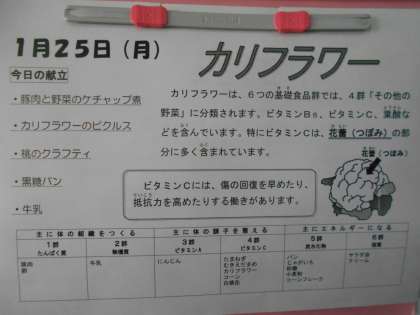 1月25日(月)
カリフラワー
今日の献立
・豚肉と野菜のケチャップ煮
・カリフラワーのピクルス
・桃のクラフティ
・黒糖パン
・牛乳
カリフラワーは、6つの基礎食品群では、4群「その他の
野菜」に分類されます。ビタミンB₆、ビタミンC、葉酸な
どを含んでいます。特にビタミンCは、花蕾(つぼみ)の部
分に多く含まれています。
花蕾(つぼみ)
ビタミンCには、傷の回復を早めたり、
抵抗力を高めたりする働きがあります。
主に体の組織をつくる 主に体の調子を整える 主にエネルギーになる
1群 2群 3群 4群 5群 6群
たんぱく質 無機質 ビタミンA ビタミンC 炭水化物 脂質
豚肉 牛乳 にんじん たまねぎ パン サラダ油
卵 むきえだまめ じゃがいも クリーム
カリフラワー 砂糖
コーン 小麦粉
白桃缶 コーンフレーク